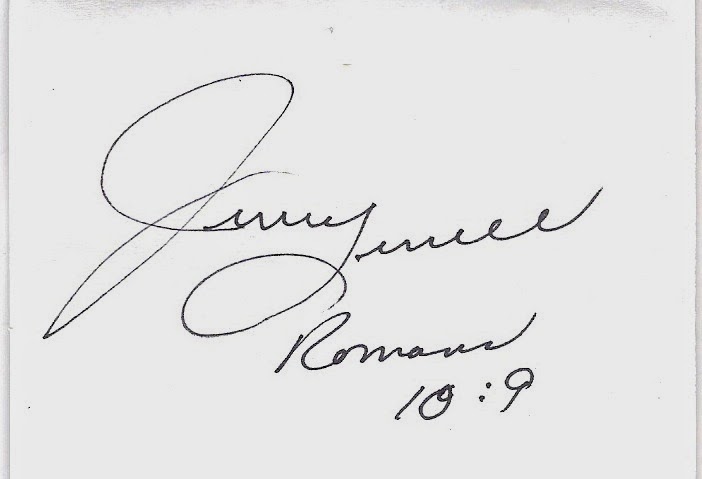 Jerry Terrell
Romans
10:9